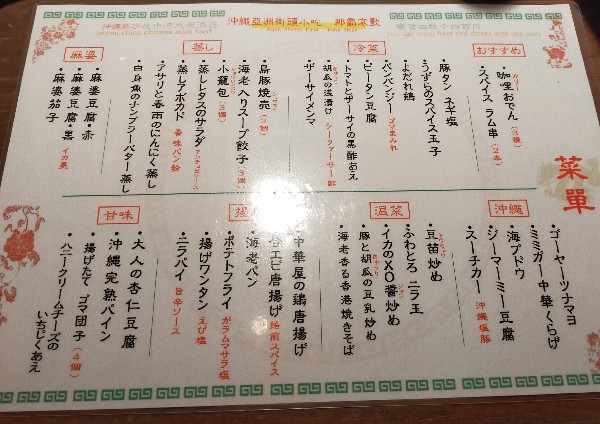 沖縄亞州街頭小吃 那覇哀歌
菜單
おすすめ
・咖哩おでん (3種)
カリー
・スパイス ラム串 (2本)
冷菜
・豚タン ネギ塩
・うずらのスパイス玉子
・よだれ鶏
・バンバンジー ゴマまみれ
・ピータン豆腐
・トマトとザーサイの黒酢あえ
・胡瓜の浅漬け シークァーサー酢
・ザーサイメンマ
蒸し
・晶豚焼売 (2個)
・海老 入りスープ餃子 (3個)
・小籠包 (3個)
・蒸しレタスのサラダ アンチョビソース
・蒸しアボカド 香味パン粉
・アサリと春雨のにんにく蒸し
・白身魚のナンプラーバター蒸し
麻婆
・麻婆豆腐・赤
・麻婆豆腐・黒 イカ墨
・麻婆茄子
沖縄
・ゴーヤーツナマヨ
・ミミガー中華くらげ
・海ブドウ
・ジーマーミー豆腐
・スーチカー 沖縄塩豚
温菜
・豆苗炒め
・ふわとろ ニラ玉
・イカのXO醤炒め
・豚と胡瓜の豆乳炒め
・海老香る香港焼きそば
・中華屋の鶏唐揚げ
唐揚げ 焙煎スパイス
・海老パン
・ポテトフライ ガラムマサラ塩
・揚げワンタン えび塩
・ニラパイ 旨辛ソース
甘味
・大人の杏仁豆腐
・沖縄完熟パイン
・揚げたて ゴマ団子 (4個)
・ハニークリームチーズの
いちじくあえ